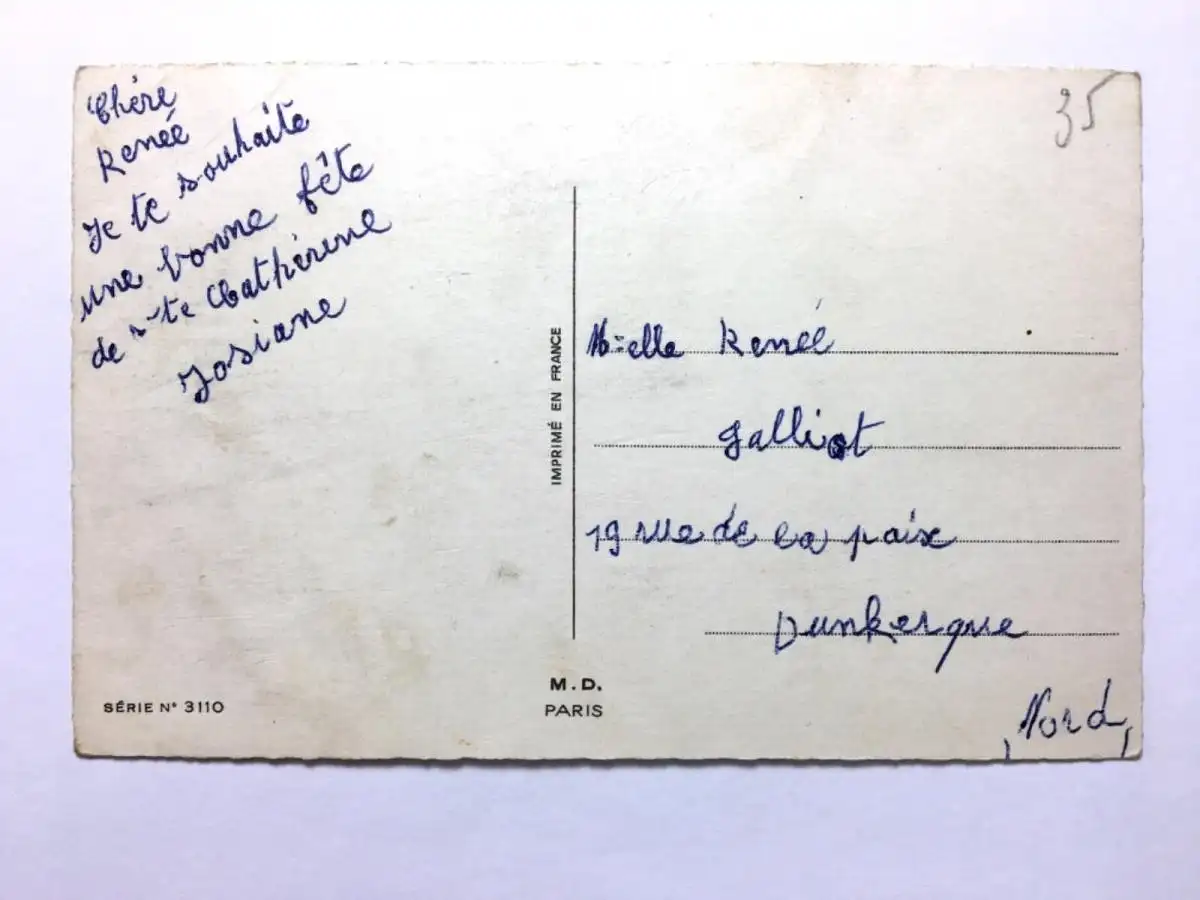 Chère
Renée
Je te souhaite
une bonne fête
de Ste Cathérine
Josiane
35
IMPRIMÉ EN FRANCE
Melle Renée
Galliot
19 rue de la paix
Dunkerque
Nord
SÉRIE N° 3110
M.D.
PARIS